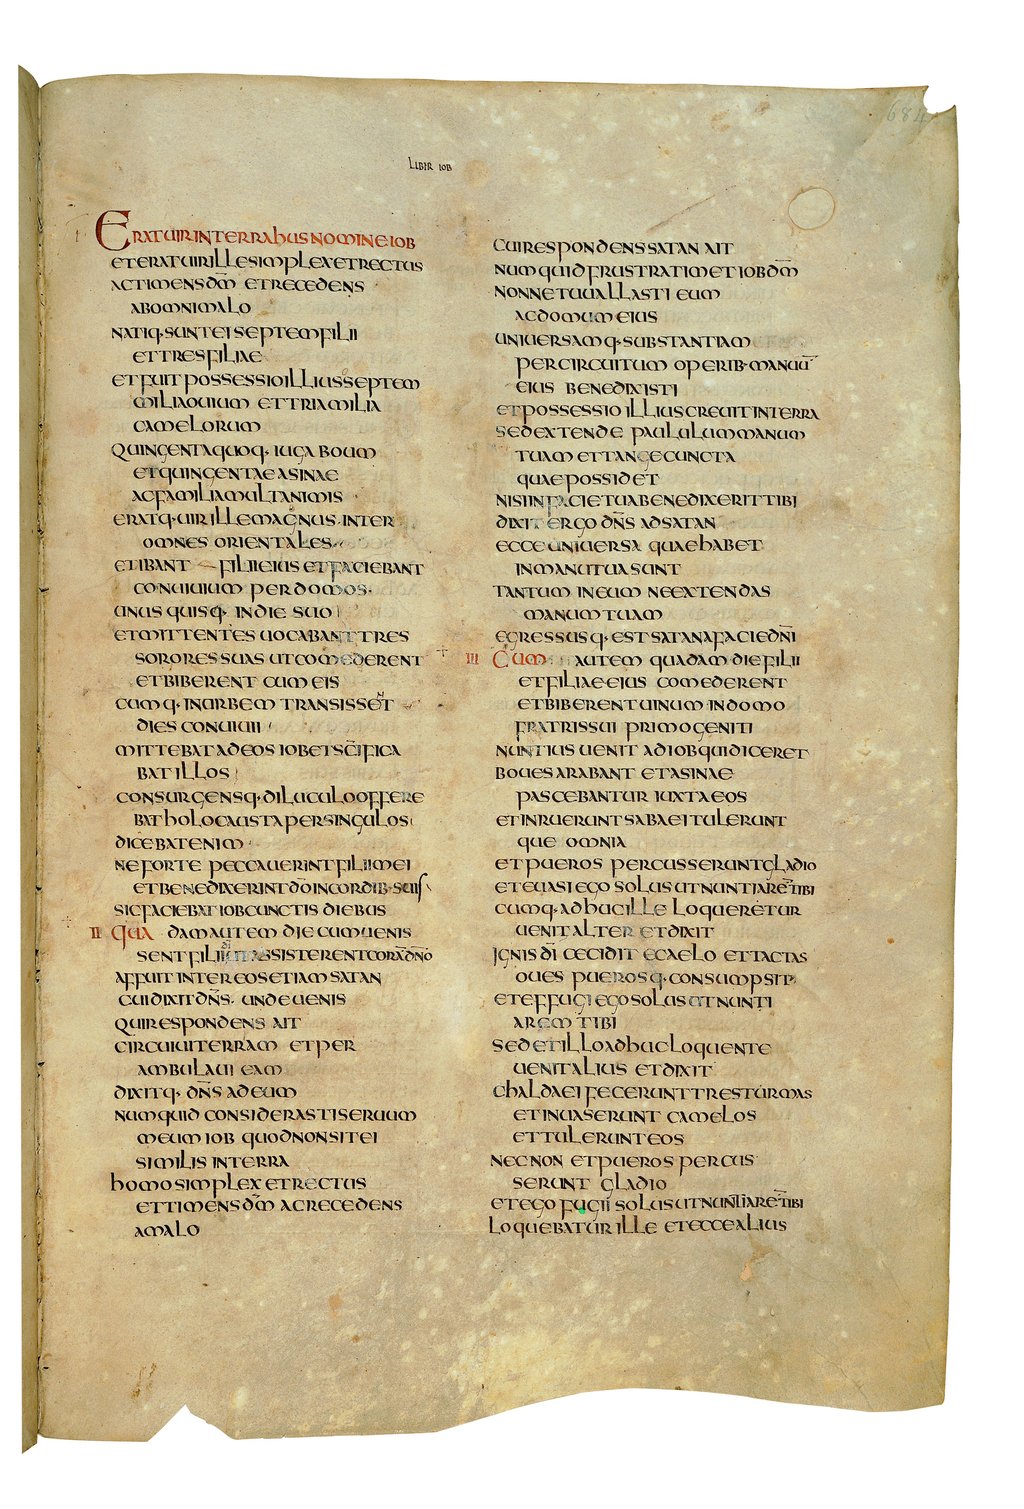 684
LIBIR IOB
I
ERATUIRINTERRAhUSNOMINEIOB
ETERATUIRILLESIMPLEXETRECTUS
ACTIMENSDM̄ ETRECEDENS
ABOMNIMALO
NATIQ·SUNTEISEPTEMFILII
ETTRESFILIAE
ETFUITPOSSESSIOILLIUSSEPTEM
MILIAOUIUM ETTRIAMILIA
CAMELORUM
QUINGENTAQUOQ· IUGA BOUM
ETQUINGENTAE ASINAE
ACFAMILIAMULTANIMIS
ERATQ·UIRILLEMAGNUS·INTER
OMNES ORIENTALES
ETIBANT FILIIEIUS ETFACIEBANT
CONUIUIUM PERDOMOS·
UNUSQUISQ· INDIE SUO
ETMITTENTES UOCABANTTRES
SORORESSUAS UTCOMEDERENT
ETBIBERENT CUM EIS
CUMQ·INURBEM TRANSISSENT
DIES CONUIUII
MITTEBAT ADEOS IOBETSC̄IFICA
BATILLOS
CONSURGENSQ·DILUCULOOFFERE
BATHOLOCAUSTAPERSINGULOS
DICEBATENIM
NEFORTE PECCAUERINTFILIIMEI
ETBENEDIXERINTDŌINCORDIB·SUIS
SICFACIEBATIOBCUNCTIS DIEBUS
II QUA DAMAUTEM DIECUMUENIS
SENTFILIIDĪUTASSISTERENTCORĀDN̄O
AFFUITINTEREOSETIAMSATAN
CUIDIXITDN̄S· UNDEUENIS
QUIRESPONDENS AIT
CIRCUIUITERRAM ETPER
AMBULAUI EAM
DIXITQ· DN̄S ADEUM
NUMQUID CONSIDERASTISERUUM
MEUMIOB QUODNONSITEI
SIMILIS INTERRA
HOMOSIMPLEXETRECTUS
ETTIMENSDM̄ ACRECEDENS
AMALO
CUIRESPONDENSSATAN AIT
NUMQUIDFRUSTRATIMETIOBDM̄
NONNETUUALLASTI EUM
ACDOMUMEIUS
UNIUERSAMQ·SUBSTANTIAM
PERCIRCUITUM OPERIB·MANUŪ
EIUS BENEDIXISTI
ETPOSSESSIOILLIUSCREUITINTERRA
SEDEXTENDE PAULULUMMANUM
TUAM ETTANGECUNCTA
QUAEPOSSIDET
NISIINFACIETUABENEDIXERITTIBI
DIXIT ERGO DN̄S ADSATAN
ECCEUNIUERSA QUAEHABET
INMANUTUASUNT
TANTUM INEUM NEEXTENDAS
MANUMTUAM
EGRESSUSQ·ESTSATANAFACIEDN̄I
III CUM AUTEM QUADAMDIEFILII
ETFILIAEEIUS COMEDERENT
ETBIBERENTUINUM INDOMO
FRATRISSUI PRIMOGENITI
NUNTIUSUENIT ADIOBQUIDICERET
BOUESARABANT ETASINAE
PASCEBANTUR IUXTAEOS
ETINRUERUNTSABAEITULERUNT
QUE OMNIA
ETPUEROS PERCUSSERUNTGLADIO
ETEUASIEGOSOLUSUTNUNTIARĒTIBI
CUMQ·ADHUCILLE LOQUERETUR
UENITALTER ETDIXIT
IGNISDĪ CECIDIT ECAELO ETTACTAS
OUES PUEROSQ·CONSUMPSIT
ETEFFUGIEGOSOLUSUTNUNTI
AREM TIBI
SEDETILLOADHUCLOQUENTE
UENITALIUS ETDIXIT
CHALDAEIFECERUNTTRESTURMAS
ETINUASERUNT CAMELOS
ETTULERUNTEOS
NECNON ETPUEROSPERCUS
SERUNT GLADIO
ETEGO FUGIISOLUSUTNUNTIARĒTIBI
LOQUEBATURILLE ETECCEALIUS